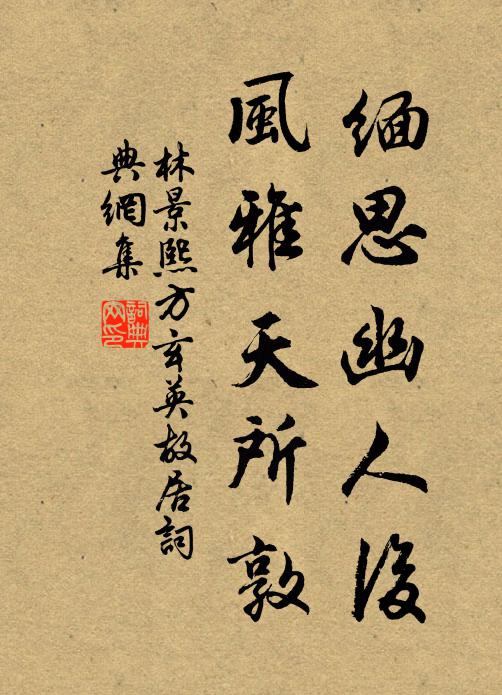 緬思幽人後
風雅天所敦
林景熙方玄英故居詞
典網集
詞典
网印